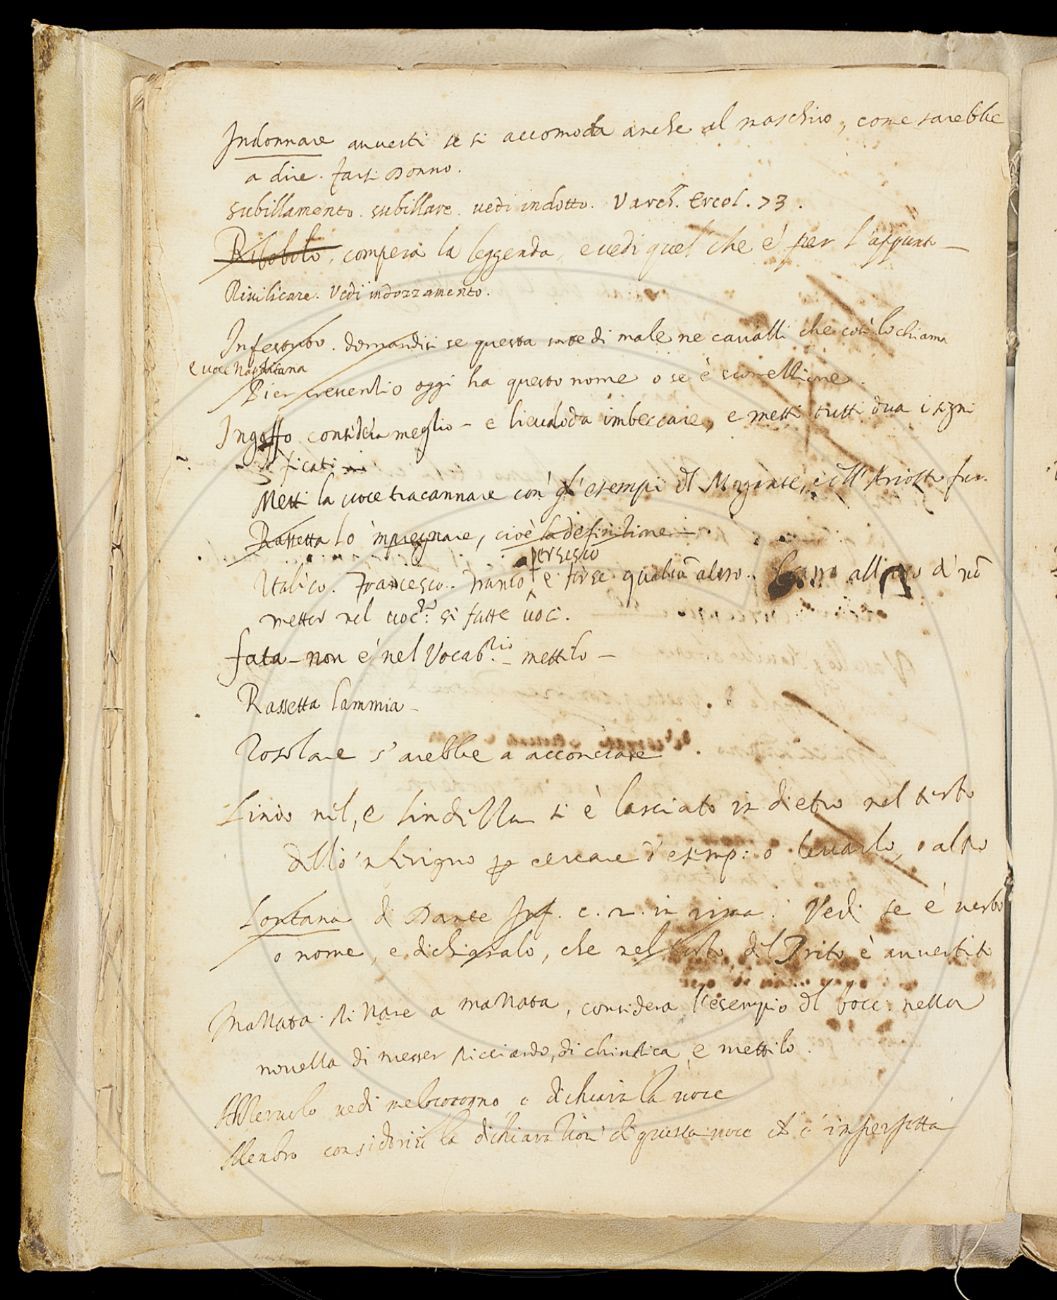 Indonnare auuerti se si accomoda anche al maschio, come sarebbe
a dire. farsi Donno.
subillamento. subillare. uedi indotto. Varch. Ercol. 73.
Ribobolo. compera la leggenda, e uedi quel che è per l'appunt
Riuilicare. Vedi indozzamento.
Infestuto. domandisi se questa sorte di male ne caualli che così lo chiama
è uoce Napoletana
Pier crescentio oggi ha questo nome o se è
Ingoffo considera meglio – e lieualo da imbeccare, e metti tutti dua i signi
ficati
Metti la uoce tracannare con gl'esempi del Morgante, e dell'Ariosto fur.
Rassetta lo 'mpregnare, cioè la definitione –
persesio
Italico. Francesco. Franco e forse qualcun altro. di nō
metter nel uoc.rio si fatte uoci.
fata – non è nel Vocab.rio – mettilo –
Rassetta lammia –
Rosolare s'arebbe a acconciare
Lindo nil, e lindella si è lasciato in dietro nel testo
dello 'nferigno p cercare d'esemp: o leuarlo, o altro
Lontana di Dante Inf. c. 2. in rima. Vedi se è uerbo
o nome, e dichiaralo, che nel testo del Trito è auuertito
Mannata. Rinare a mannata, considera l'esempio del bocc. nella
nouella di messer Ricciardo, di chinsica e mettilo.
uedi melocotogno e dichiara la uoce
Menbro considerisi la dichiaration di questa uoce che è imperfetta